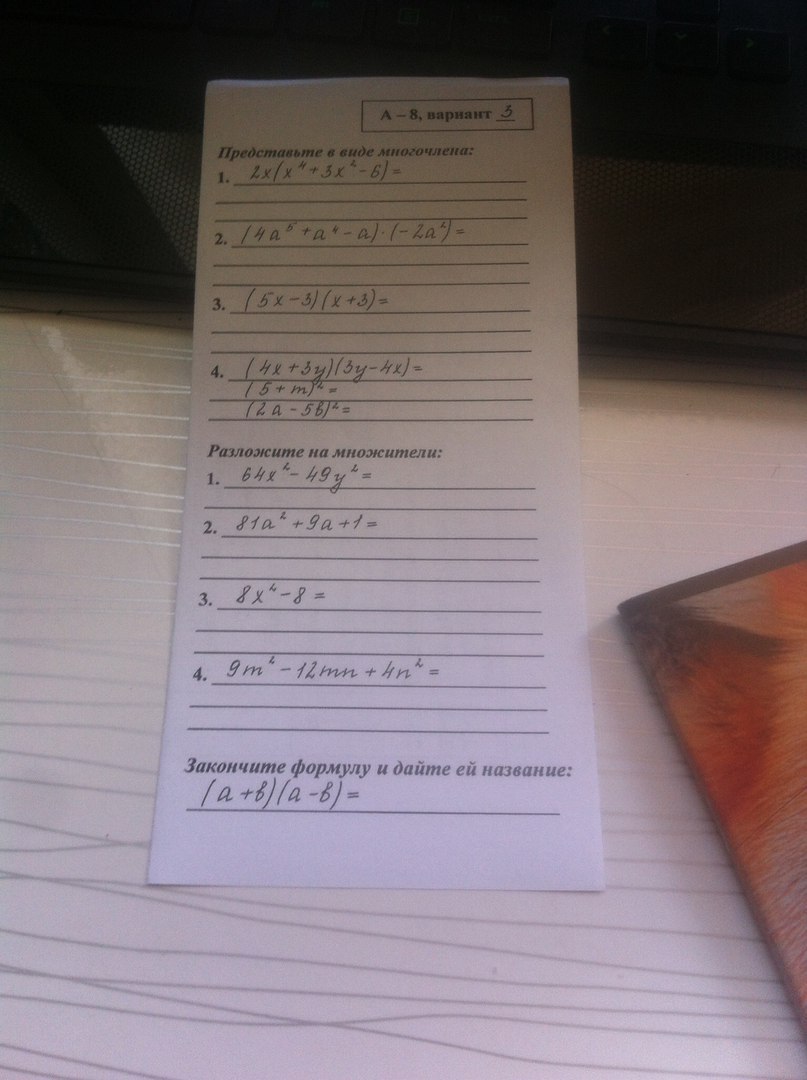 А – 8, вариант 3
Представьте в виде многочлена:
1. 2x(x⁴+3x²-6)=
2. (4a⁵+a⁴-a)·(-2a²)=
3. (5x-3)(x+3)=
4. (4x+3y)(3y-4x)=
(5+m)²=
(2a-5b)²=
Разложите на множители:
1. 64x²-49y²=
2. 81a²+9a+1=
3. 8x²-8=
4. 9m²-12mn+4n²=
Закончите формулу и дайте ей название:
(a+b)(a-b)=